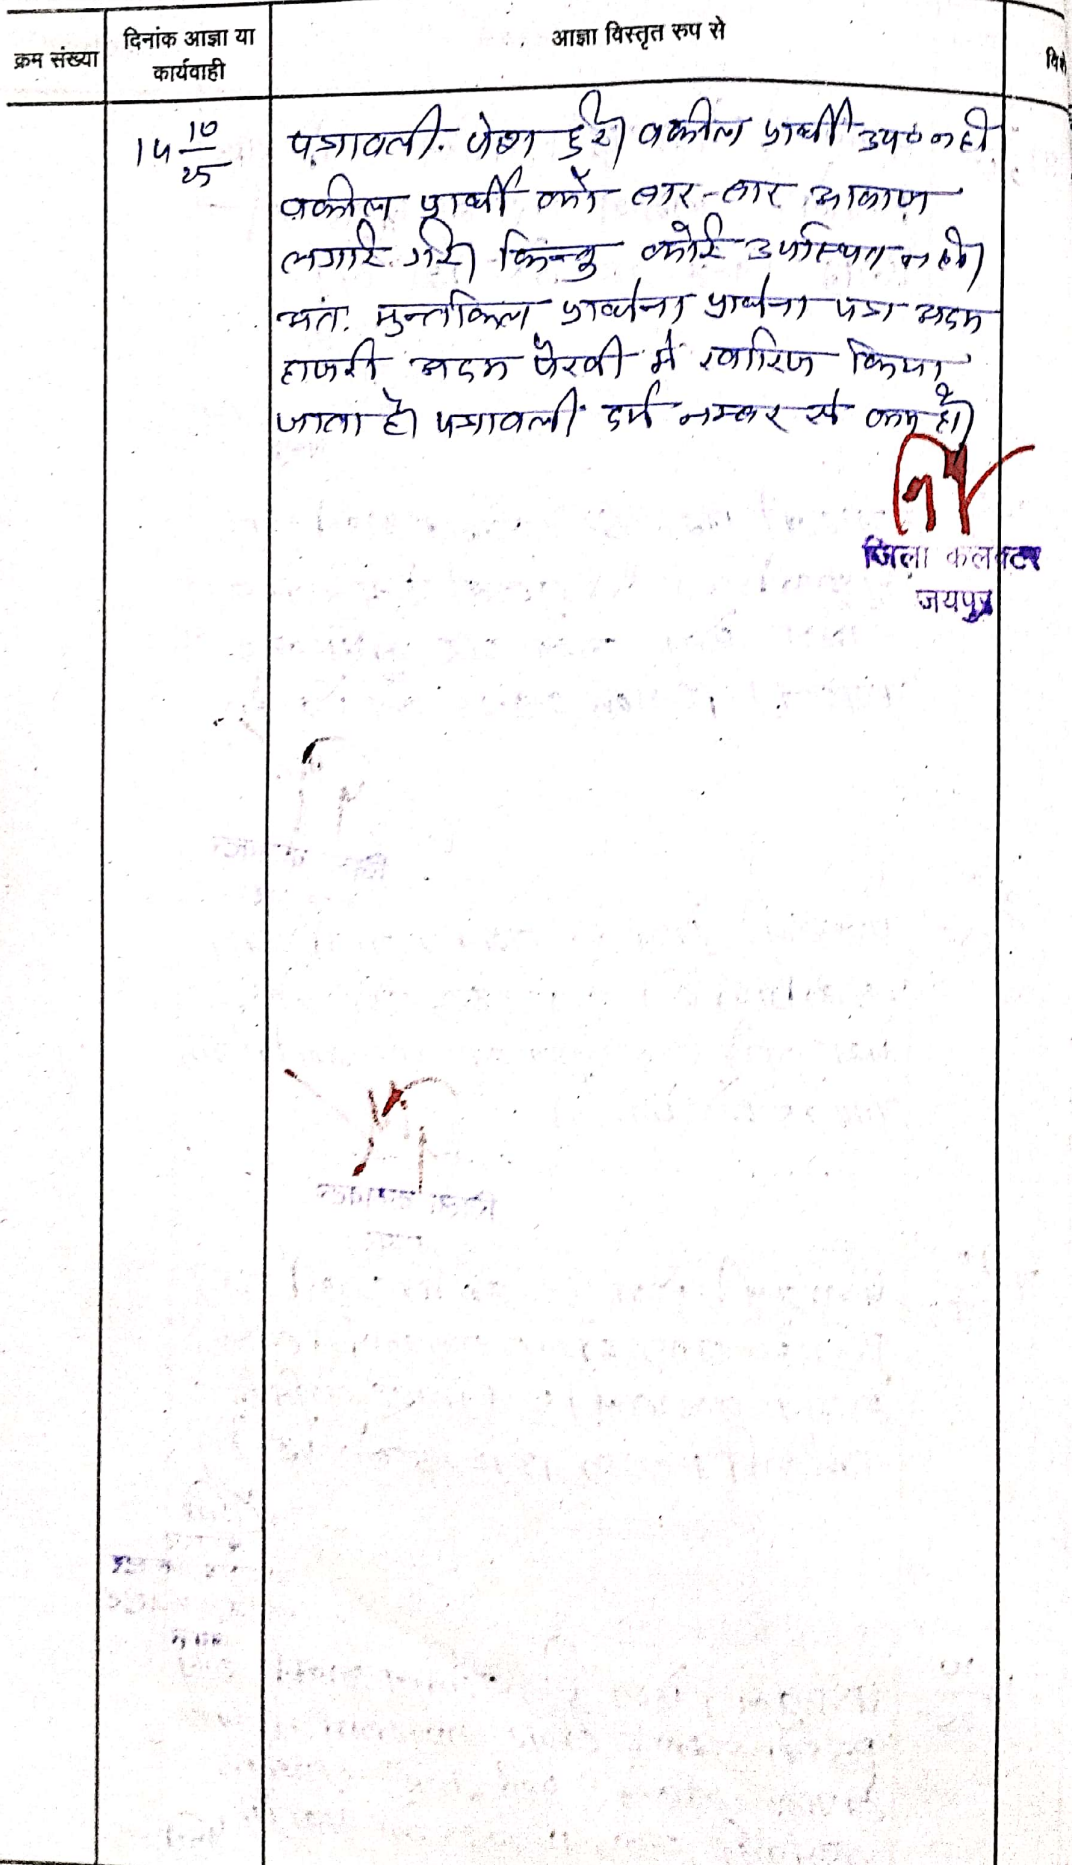 क्रम संख्या
दिनांक आज्ञा या
कार्यवाही
आज्ञा विस्तृत रुप से
14 10/25
पत्रावली पेश हुई। वकील प्रार्थी उप० नही
वकील प्रार्थी को बार-बार आवाज
लगाई गई। किन्तु कोई उपस्थित नही।
अत: मुन्तकिल प्रार्थना प्रार्थना पत्र अदम
हाजरी अदम पैरवी में खारिज किया
जाता है। पत्रावली दर्ज नम्बर से कम हो।
जिला कलक्टर
जयपुर